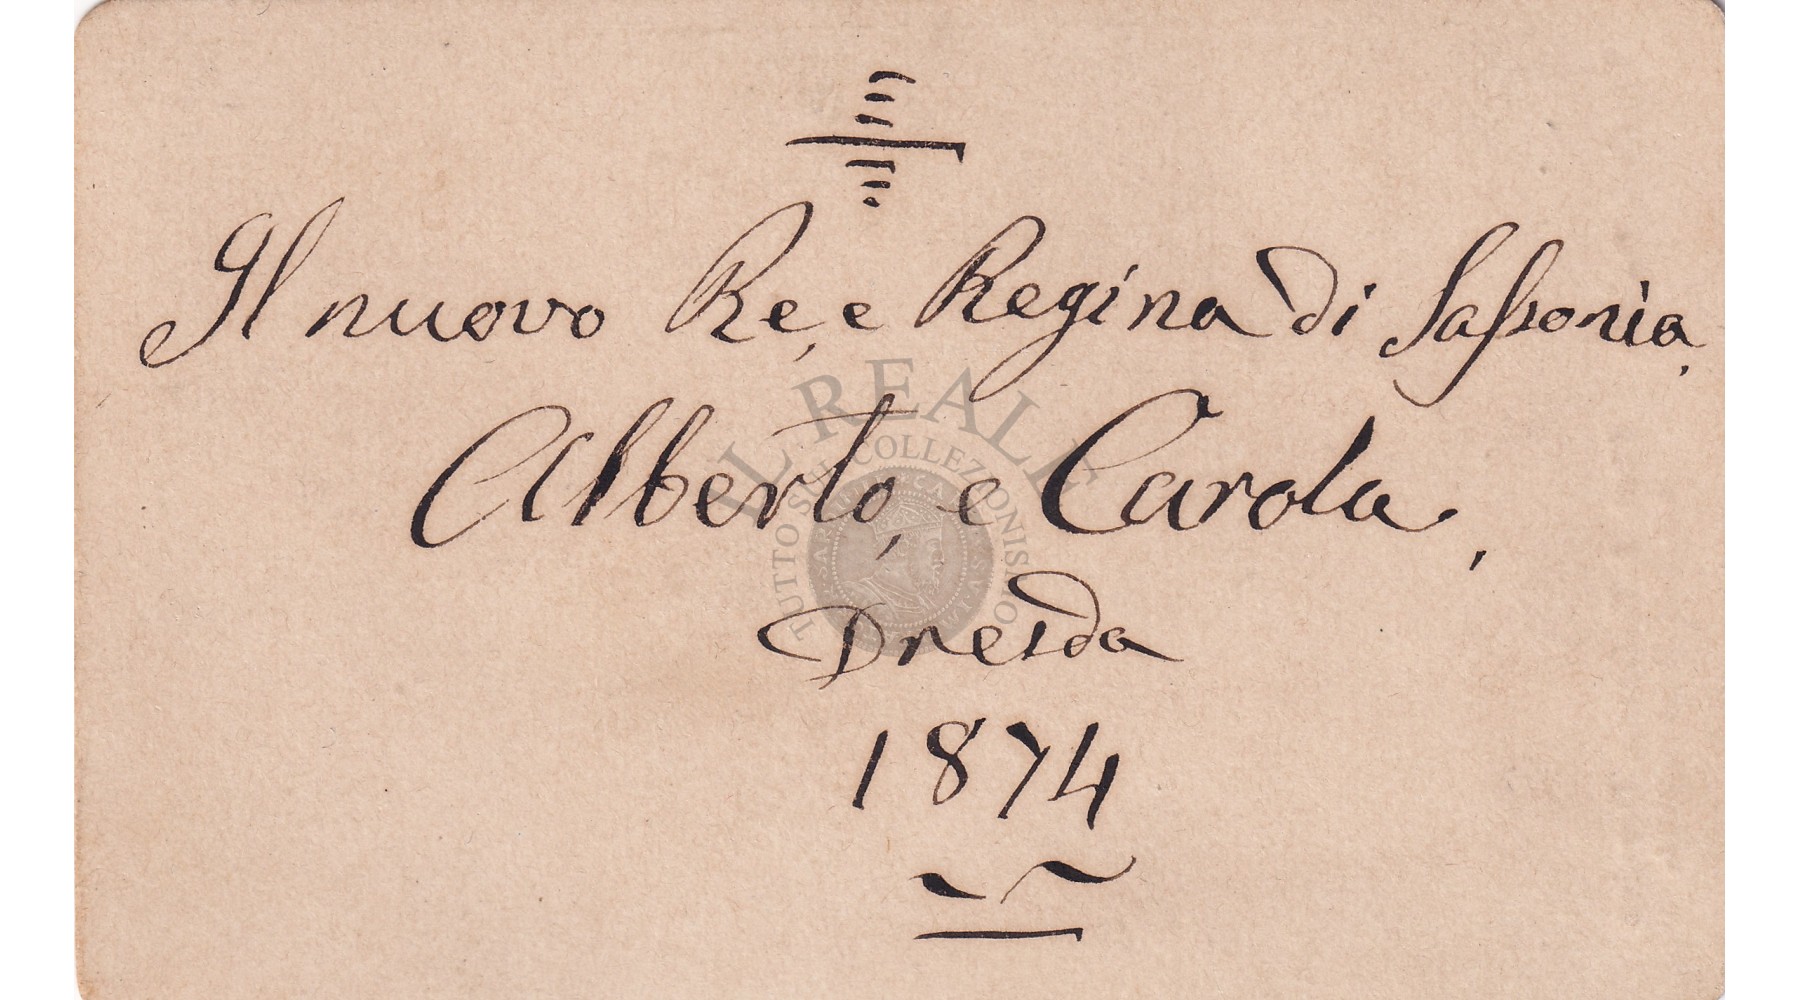 Il nuovo Re, e Regina di Saſsonia,
Alberto, e Carola,
Dresda
1874
IL REALE
TUTTO SUL COLLEZIONISMO